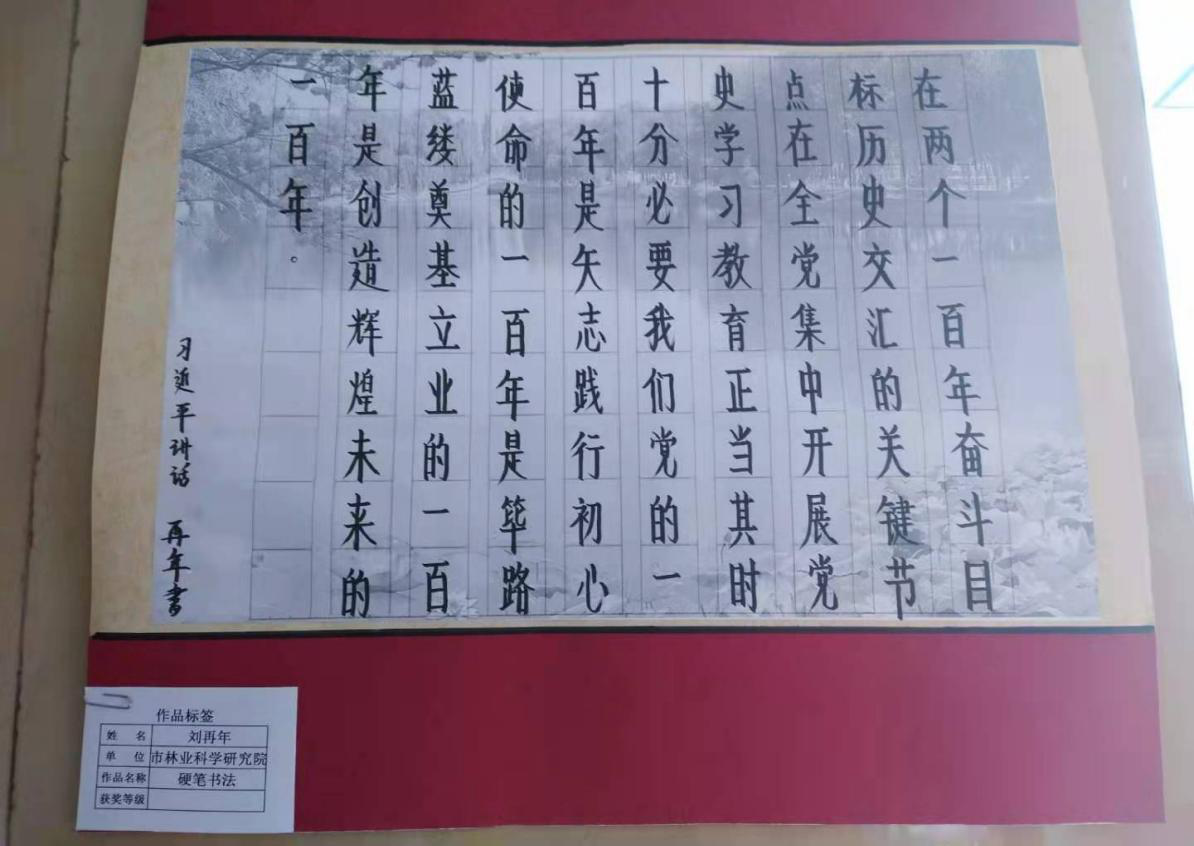 在两个一百年奋斗目
标历史交汇的关键节
点在全党集中开展党
史学习教育正当其时
十分必要我们党的一
百年是矢志践行初心
使命的一百年是筚路
蓝缕奠基立业的一百
年是创造辉煌未来的
一百年。
习近平讲话 再年书
作品标签
姓名 刘再年
单位 市林业科学研究院
作品名称 硬笔书法
获奖等级